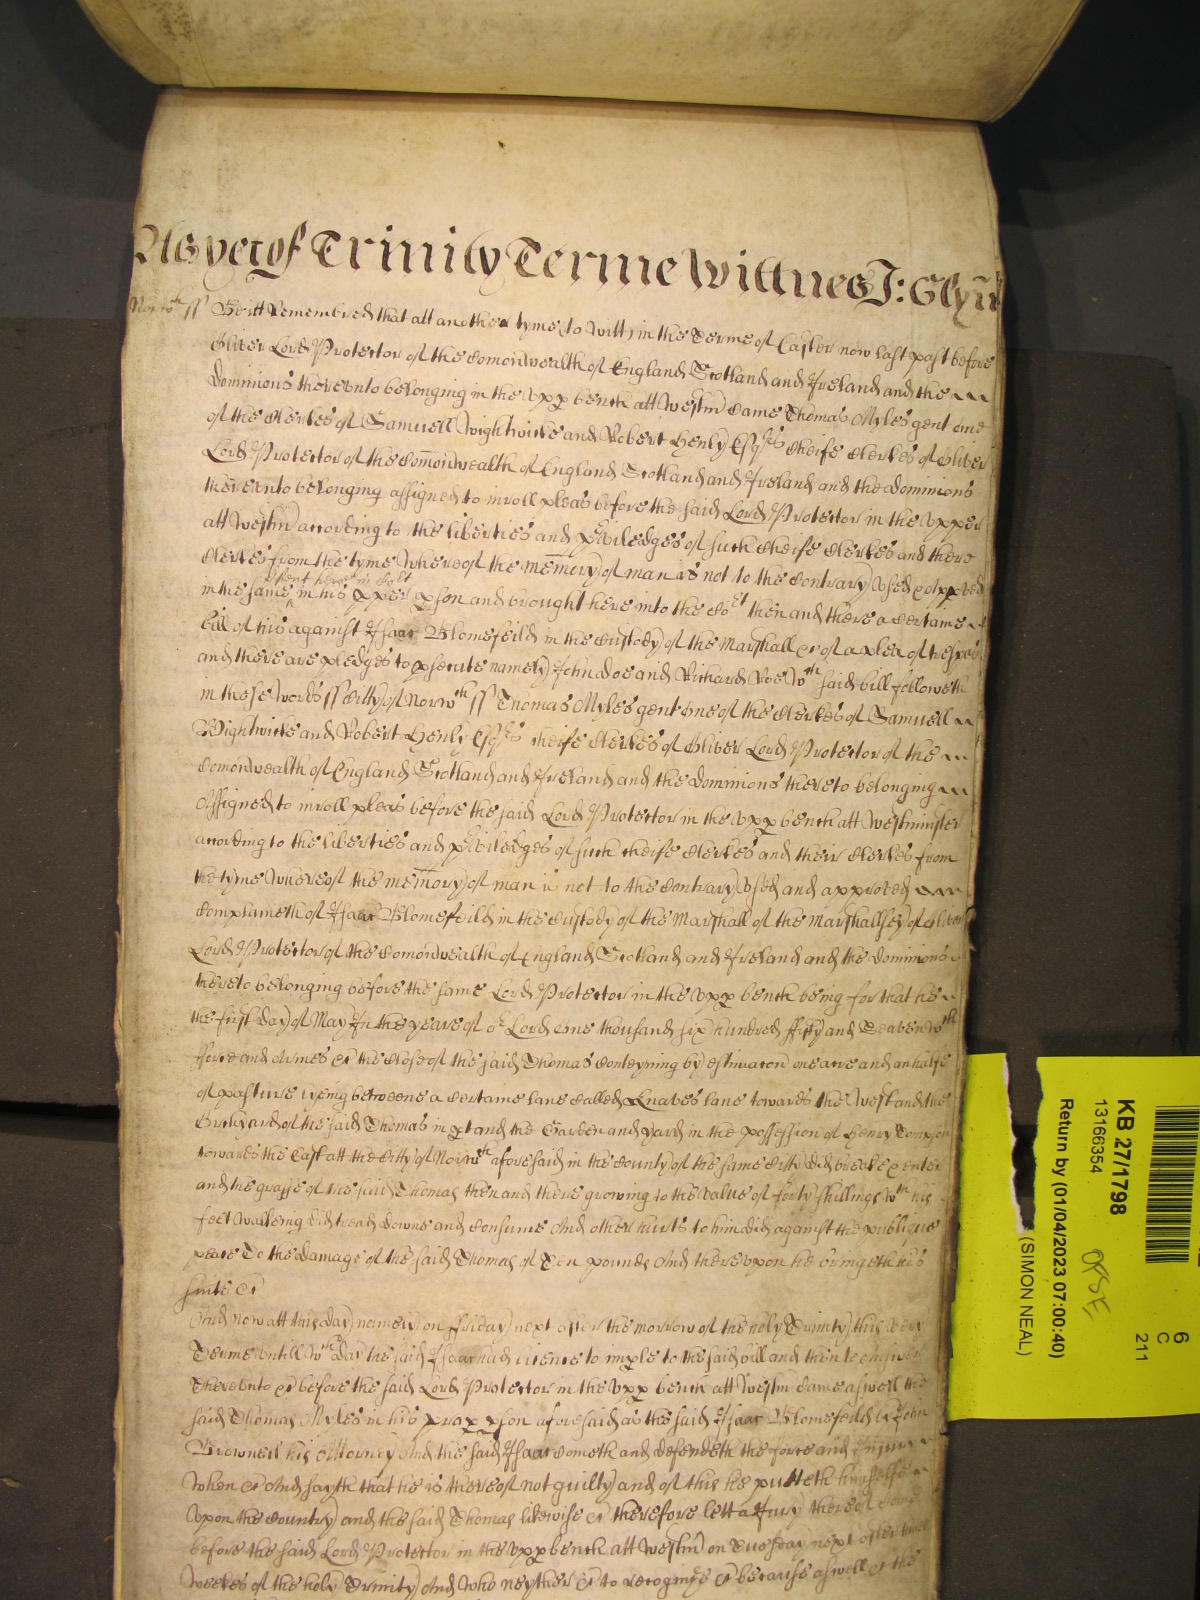 As yet of Trinity Terme Wittnes J: Glynn
Norwch ss Be itt Remembred that att another tyme (to witt) in the Terme of Easter now last past before
Oliver Lord Protector of the Comonwealth of England Scotland and Ireland and the
Dominions thereunto belonging in the upp bench att Westm Came Thomas Myles gent one
of the Clerkes of Samuell Wightwicke and Robert Henly Esqrs Cheife Clerkes of Oliver
Lord Protector of the Comonwealth of England Scotland and Ireland and the Dominions
thereunto belonging assigned to inroll pleas before the said Lord Protector in the Upper
att Westm according to the liberties and priviledges of such Cheife Clerkes and there
Clerkes from the tyme Whereof the memory of man is not to the Contrary used & appved
psent here in Cort
in the same in his pper pson and brought here into the Cort then and there a Certaine
bill of his against Isaac Blomefeild in the Custody of the Marshall &c of a plea of trespas
and there are pledges to psecute namely John Doe and Richard Roe wch said bill followeth
in these words ss Citty of Norwch ss Thomas Myles gent one of the Clerkes of Samuell
Wightwicke and Robert Henly Esqrs cheife Clerkes of Oliver Lord Protector of the
Comonwealth of England Scotland and Ireland and the Dominions thereto belonging
Assigned to inroll pleas before the said Lord Protector in the upp bench att Westminster
according to the liberties and priviledges of such cheife Clerkes and their Clerkes from
the tyme whereof the memory of man is not to the Contrary used and approved
Complaineth of Isaac Blomefeild in the Custody of the Marshall of the Marshallsey of Oliver
Lord Protector of the Comonwealth of England Scotland and Ireland and the Dominions
thereto belonging before the same Lord Protector in the upp bench being for that he
the first day of May In the yeare of or Lord one thousand six hundred fifty and Seaven wth
force and Armes &c the Close of the said Thomas Conteyning by estimacon one acre and an halfe
of pasture lyeing betweene a Certaine lane Called Knaves lane towards the West and the
Orchyard of the said Thomas in pt and the Garden and yard in the possession of Henry Tompson
towards the East att the Citty of Norwch aforesaid in the County of the same Citty did breake & enter
and the grasse of the said Thomas then and there growing to the value of forty shillings wth his
feet walkeing did tread downe and Consume And other hurts to him did against the publique
peace To the damage of the said Thomas of Ten pounds And thereupon he bringeth his
suite &c
And now att this day namely on Friday next after the morrow of the holy Trinity this very
Terme untill wch day the said Isaac had licence to imple to the said bill and then to answer
Thereunto &c before the said Lord Protector in the upp bench att Westm Came aswell the
said Thomas Myles in his prop pson aforesaid as the said Isaac Blomefeild by John
Browne his Attorney And the said Isaac cometh and defendeth the force and Injury
when &c And sayth that he is thereof not guilty and of this he putteth himselfe
upon the Country and the said Thomas likewise &c therefore lett a Jury thereof come
before the said Lord Protector in the upp bench att Westm on Tuesday next after three
weekes of the holy Trinity And who neyther &c to recognize &c because aswell &c the
KB 27/1798
13166354
Return by (01/04/2023 07:00:40)
(SIMON NEAL)
6
C
211